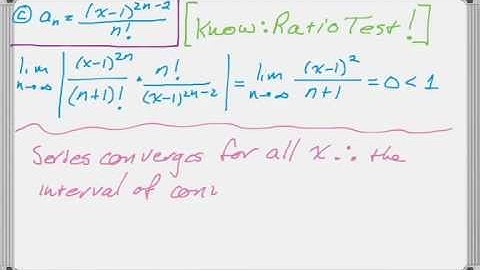 ⓒ aₙ = (x-1)^(2n-2) / n! [Know: Ratio Test!]
lim n→∞ | (x-1)^(2n) / (n+1)! · n! / (x-1)^(2n-2) | = lim n→∞ (x-1)^2 / (n+1) = 0 < 1
Series converges for all x ∴ the
interval of con